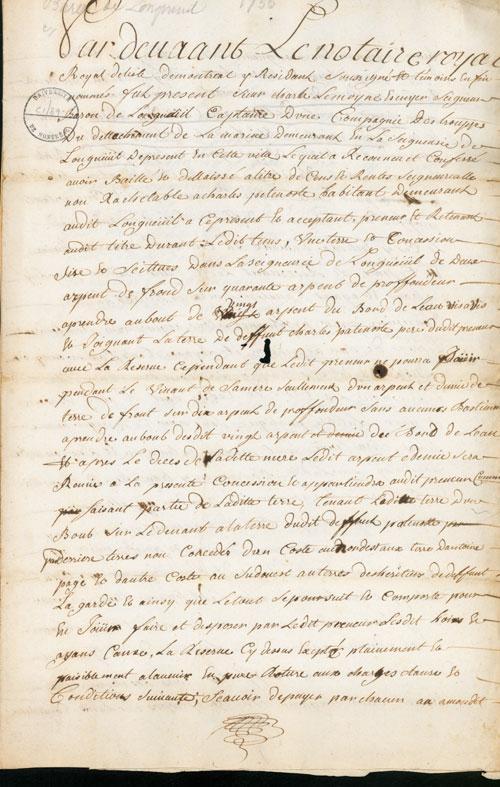 Pardevant Le notaire royal
Royal de lisle de montreal y Residant Soussigné et temoins en fin
nommés fut present Sieur charle Lemoyne Ecuyer Seigneur
Baron de Longueuil Capitaine Dune Compagnie Des trouppes
Du dettachement de La marine Demeurant en La Seigneurie de
Longueuil De present en Cette ville Lequel a Reconneu et Confessé
avoir Baillé et dellaissé a titre de Cens et Rentes Seigneurialle
non Racheptable a charles patenoste habitant Demeurant
audit Longueuil a Ce present et acceptant, preneur et Retenant
audit titre Durant Ledit tems, Une terre et Concession
size et Scittuée Dans La seigneurie de Longueuil de Deux
arpent de frond Sur quarante arpens de proffondeur
a prendre au bout de vingt arpent du Bord de Leau vis a vis
et Joignant La terre de deffunt charles patenoste pere dudit preneur
avec La Reserve Cependant que Ledit preneur ne poura Joüir
pendant Le Vivant de Sa mere Seullement D'un arpent et demie de
terre de front sur dix arpent de proffondeur Sans aucunes
a prendre au bout desdit vingt arpent et demie du Bord de Leau
Et apres Le deces de Laditte mere Ledit arpent et demie Sera
Reunie a La presente Concession et appartiendra audit preneur Comme
faisant partie de Laditte terre, Tenant Laditte terre D'un
Bout Sur Le devant a la terre dudit deffunt patenoste
par derriere terres non Concedés D'un Costé au Nordest aux terre Dantoine
page et dautre Costé au Sudouest au terres des heritiers de deffunt
La garde et ainsy que Le tout Se poursuit et Comporte pour
En Joüir faire et disposer par Ledit preneur Sesdit hoirs et
ayans Cause, La Reserve Cy dessus plainement et
paisiblement a Lavenir en pure Roture aux charges clause et
Conditions Suivante, Scavoir de payer par chacun an audit